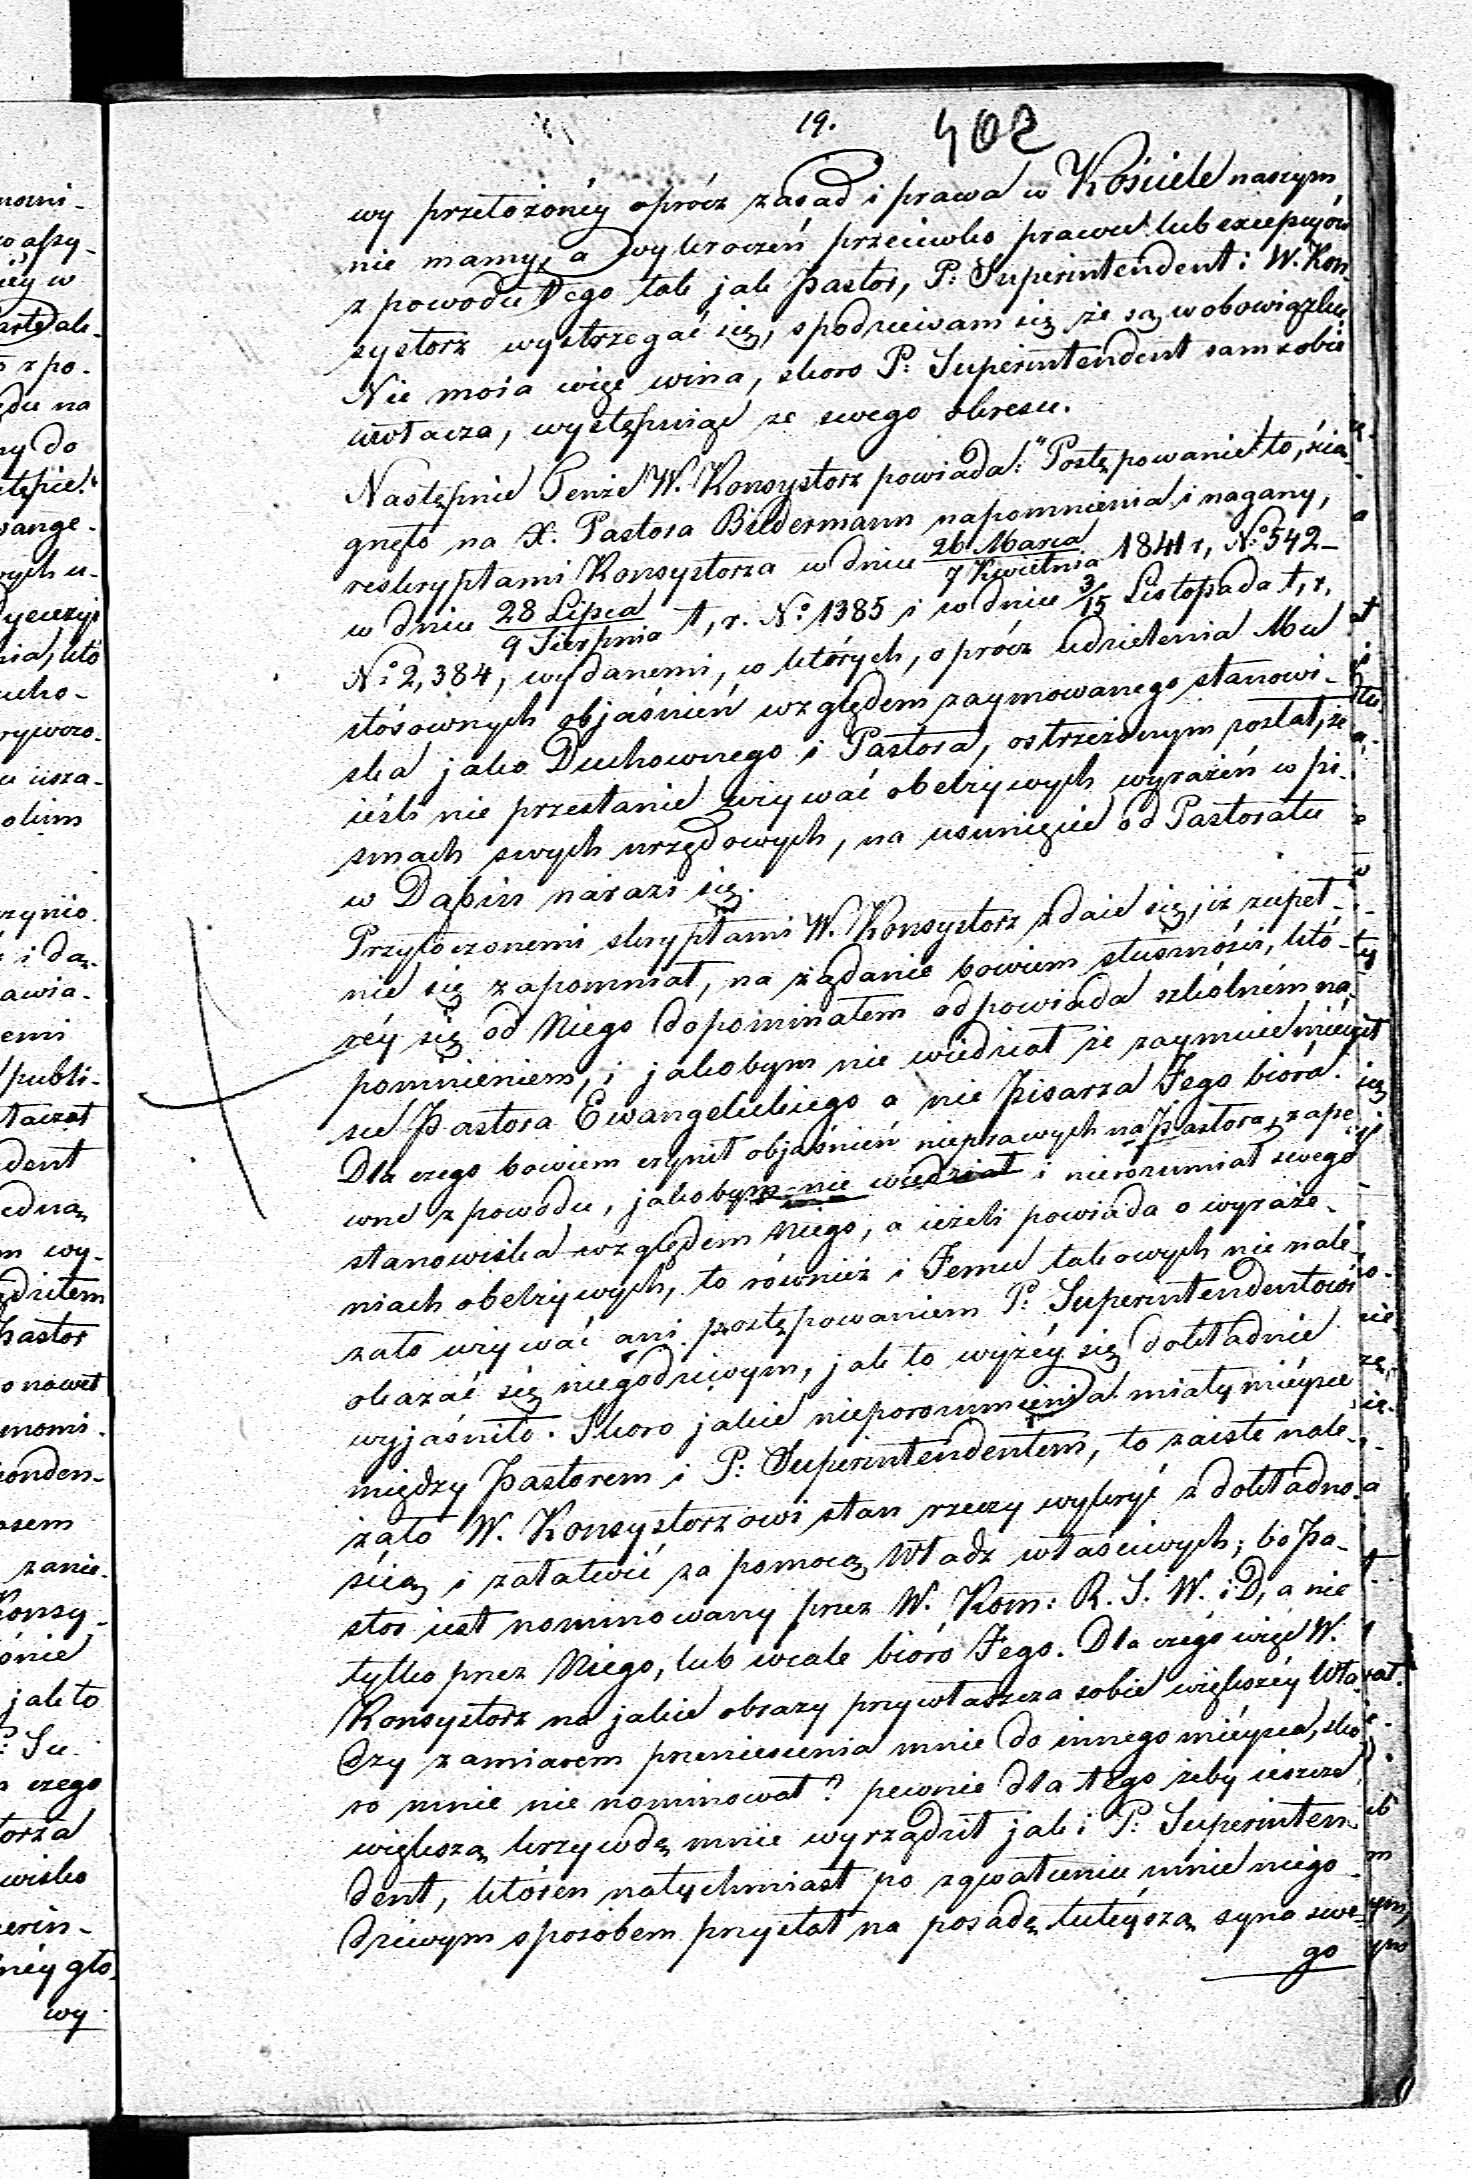 19. 402
wy przełożonéy oprócz zasad i prawa w Kościele naszym
nie mamy, a wykroczeń przeciwko prawu lub excepcyów
z powodu tego tak jak Pastor, P: Superintendent i W. Kon-
systorz wystrzegać się, spodziewam się że są w obowiązku.
Nie moia więc wina, skoro P: Superintendent sam sobie
uwłacza, występuiąc ze swego okresu.
Następnie Tenże W. Konsystorz powiada: "Postępowanie to, ścią-
gnęło na X. Pastora Biedermann napomnienia i nagany,
reskryptami Konsystorza w dniu 26 Marca / 7 Kwietnia 1841 r, No 542 –
w dniu 28 Lipca / 9 Sierpnia t, r. No 1385 i w dniu 3/15 Listopada t, r,
No 2,384, wydanemi, w których, oprócz udzielenia Mu
stósownych objaśnień względem zaymowanego stanowi-
ska jako Duchownego i Pastora, ostrzeżonym został, że
ieśli nie przestanie używać obelżywych wyrażeń w pi-
smach swych urzędowych, na usunięcie od Pastoratu
w Dąbiu narazi się.
Przytoczonemi skryptami W. Konsystorz zdaie się, iż zupeł-
nie się zapomniał, na żądanie bowiem słuszności, któ-
réy się od Niego dopominałem odpowiada szkólném na-
pomnieniem, i jakobym nie wiedział że zaymuie mieysc
su Pastora Ewangelickiego a nie Pisarza Jego bióra.
Dla czego bowiem czynił objaśnień nieprawych na Pastora, zape-
wne z powodu, jakobym nie wiedział i nierozumiał swego
stanowiska względem Niego, a ieżeli powiada o wyraże-
niach obelżywych, to również i Jemu takowych nie nale-
żało używać ani postępowaniem P: Superintendentowi
okazać się niegodziwym, jak to wyżéy się dokładnie
wyjaśniło. Skoro jakie nieporozumienia miały mieysce
między Pastorem i P: Superintendentem, to zaiste nale-
żało W. Konsystorzowi stan rzeczy wykryć z dokładno-
ścią i załatwić za pomocą Władz właściwych; bo Pa-
stor iest nominowany przez W. Kom: R. S. W. i D, a nie
tylko przez Niego, lub wcale bióro Jego. Dla czégo więc W.
Konsystorz na jakie obrazy przywłaszcza sobie większéy Wła-
dzy zamiarem przeniesienia mnie do innego mieysca, sko-
ro mnie nie nominował? pewnie dla tego żeby ieszcze
większą krzywdę mnie wyrządził jak i P: Superinten-
dent, któren natychmiast po zgwałceniu mnie niego-
dziwym sposobem przysłał na posadę tuteyszą syna swe-
go